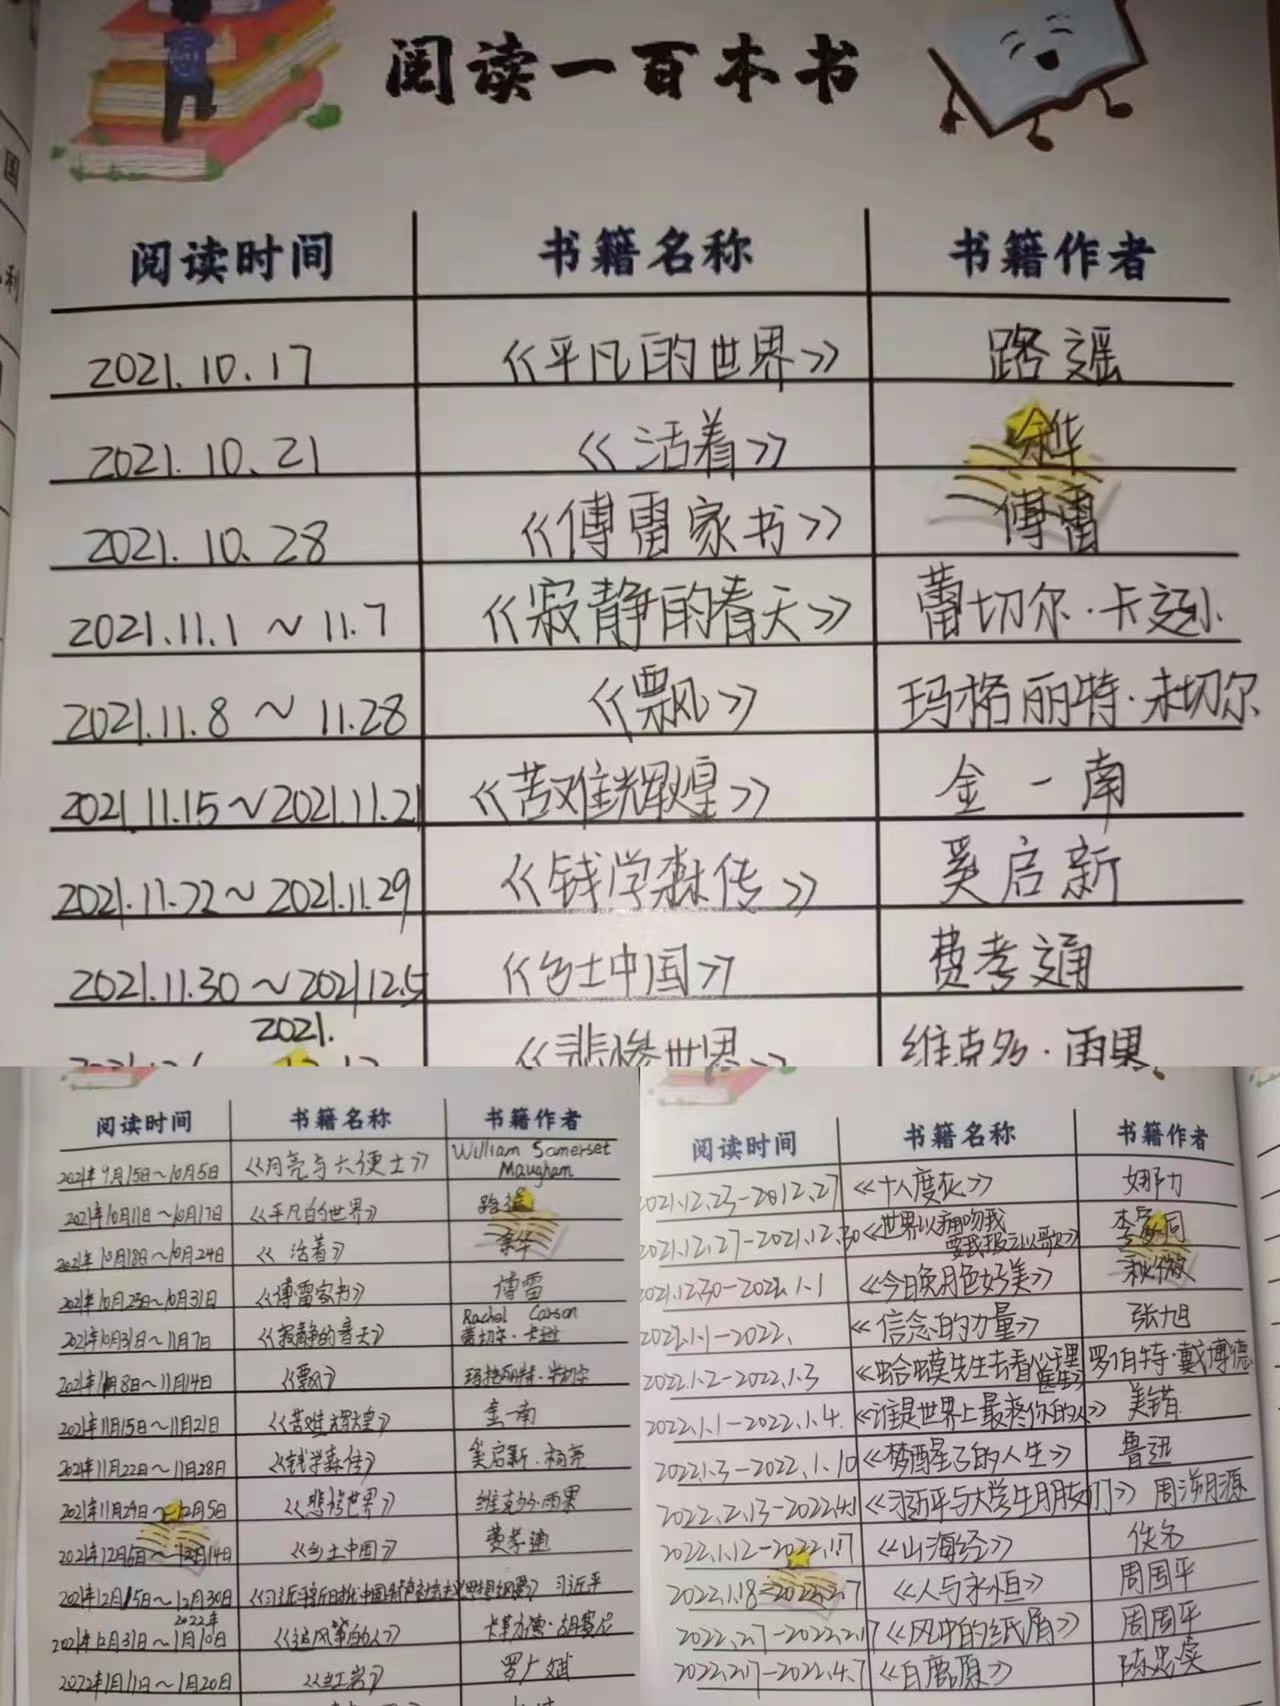 国
利
阅读一百本书
阅读时间 书籍名称 书籍作者
2021.10.17 《平凡的世界》 路遥
2021.10.21 《活着》 余华
2021.10.28 《傅雷家书》 傅雷
2021.11.1~11.7 《寂静的春天》 蕾切尔·卡逊
2021.11.8~11.28 《飘》 玛格丽特·米切尔
2021.11.15~2021.11.21 《苦难辉煌》 金一南
2021.11.22~2021.11.29 《钱学森传》 奚启新
2021.11.30~2021.12.5 《乡土中国》 费孝通
2021.
《悲惨世界》 维克多·雨果
阅读时间 书籍名称 书籍作者
2021年9月15日~10月5日 《月亮与六便士》 William Somerset Maugham
2021年10月11日~10月17日 《平凡的世界》 路遥
2021年10月18日~10月24日 《活着》 余华
2021年10月25日~10月31日 《傅雷家书》 傅雷
2021年10月31日~11月7日 《寂静的春天》 Rachel Carson 蕾切尔·卡逊
2021年11月8日~11月14日 《飘》 玛格丽特·米切尔
2021年11月15日~11月21日 《苦难辉煌》 金一南
2021年11月22日~11月28日 《钱学森传》 奚启新
2021年11月29日~12月5日 《悲惨世界》 维克多·雨果
2021年12月6日~12月14日 《乡土中国》 费孝通
2021年12月15日~12月30日 《习近平新时代中国特色社会主义思想纲要》 习近平
2021年12月31日~2022年1月10日 《追风筝的人》 卡勒德·胡赛尼
2022年1月11日~1月20日 《红岩》 罗广斌
阅读时间 书籍名称 书籍作者
2021.12.23-2012.27 《十八度灰》
2021.12.27-2021.12.30 《世界以痛吻我 要我报之以歌》 李家同
2021.12.30-2022.1.1 《今日晚月色好美》 秋微
2022.1.1-2022. 《信念的力量》 张旭
2022.1.2-2022.1.3 《蛤蟆先生去看心理医生》 罗伯特·戴博德
2022.1.1-2022.1.4. 《谁是世界上最疼你的人》
2022.1.3-2022.1.10 《梦醒了的人生》 鲁迅
2022.2.13-2022.4.1 《习近平与大学生朋友们》
2022.1.12-2022.1.17 《山海经》 佚名
2022.1.18-2022.2.7 《人与永恒》 周国平
2022.2.7-2022.2.17 《风中的纸屑》 周国平
2022.2.17-2022.4.7 《白鹿原》 陈忠实